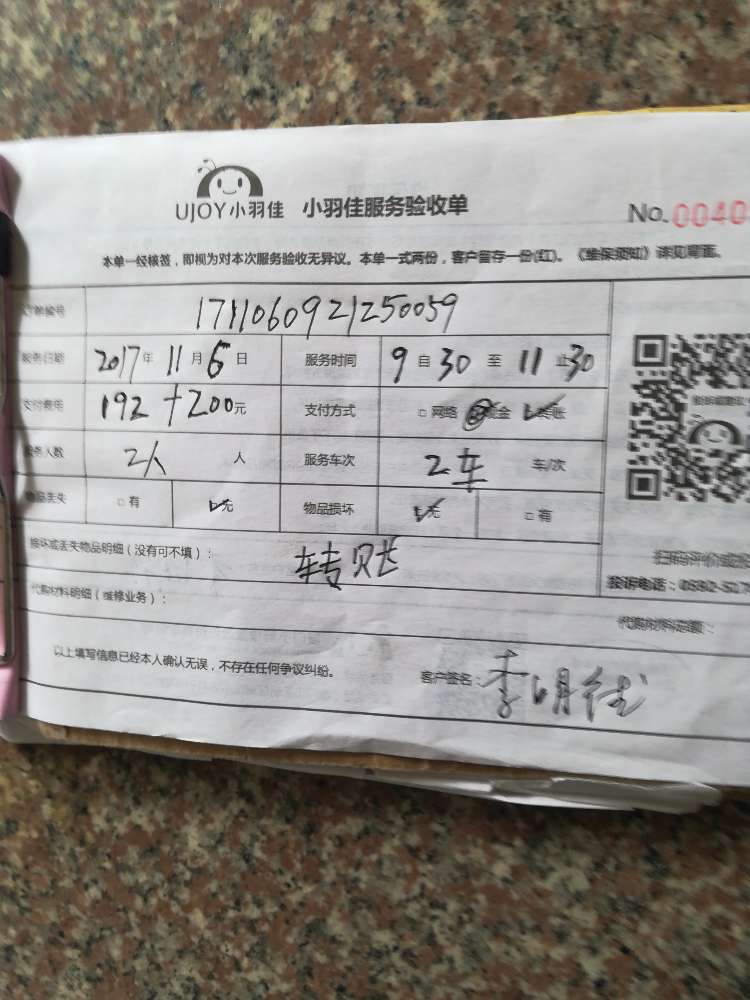 UJOY小羽佳 小羽佳服务验收单
No.0040
本单一经核签，即视为对本次服务验收无异议。本单一式两份，客户留存一份(红)。《维保须知》详见背面。
订单编号 1711060921250059
服务日期 2017年 11月 6日 服务时间 9自30至 11止30
支付费用 192+200元 支付方式 □网络 现金 转账
服务人数 2人 人 服务车次 2车 车/次
物品丢失 □有 无 物品损坏 无 □有
损坏或丢失物品明细（没有可不填）：
扫码评价或投
投诉电话：0592-517
代购材料明细（维修业务）： 代购材料总额：
以上填写信息已经本人确认无误，不存在任何争议纠纷。 客户签名：李明